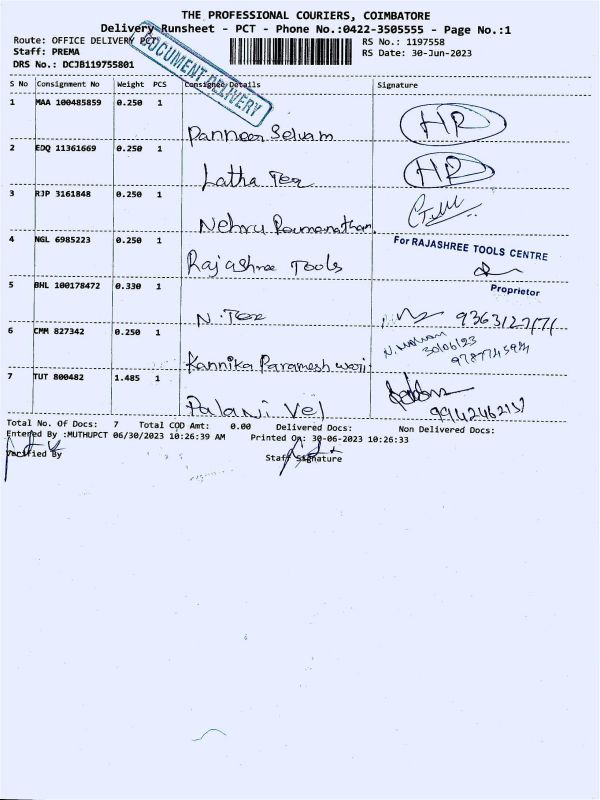 THE PROFESSIONAL COURIERS, COIMBATORE
Delivery Runsheet - PCT - Phone No.:0422-3505555 - Page No.:1
Route: OFFICE DELIVERY PCT
RS No.: 1197558
Staff: PREMA
RS Date: 30-Jun-2023
DRS No.: DCJB119755801
DOCUMENT DELIVERY
S No Consignment No Weight PCS Consignee Details Signature
1 MAA 100485859 0.250 1
Panneer Selvam HR
2 EDQ 11361669 0.250 1
Latha Tex HR
3 RJP 3161848 0.250 1
Nehru Ramanathan
4 NGL 6985223 0.250 1
Rajashree Tools
For RAJASHREE TOOLS CENTRE
Proprietor
5 BHL 100178472 0.330 1
N. Tex
6 CMM 827342 0.250 1
30/06/23
Kannika Parameshwari
7 TUT 800482 1.485 1
Palani Vel
Total No. Of Docs: 7 Total COD Amt: 0.00 Delivered Docs: Non Delivered Docs:
Entered By :MUTHUPCT 06/30/2023 10:26:39 AM Printed On: 30-06-2023 10:26:33
Verified By Staff Signature